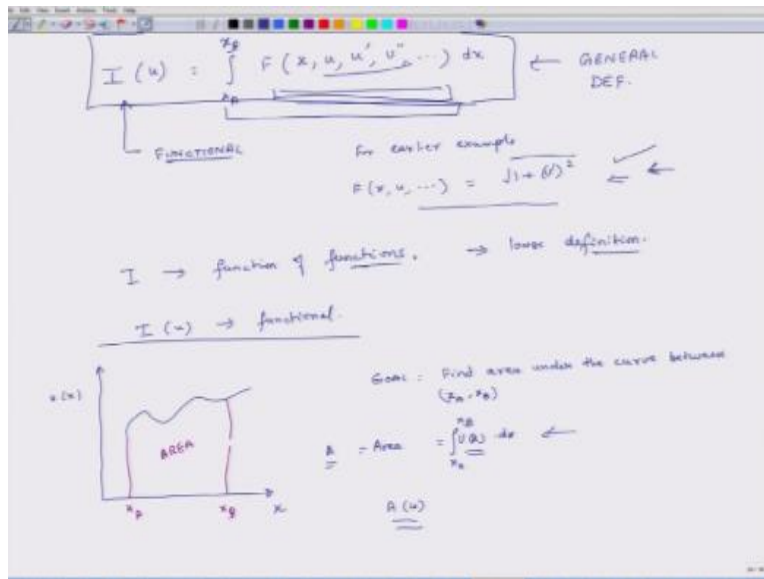 I (u) = ∫ F (x, u, u', u'', ...) dx ← GENERAL DEF.
x_B
x_A
FUNCTIONAL
For earlier example
F(x, u, ...) = √1 + (u')²
I → function of functions. → loose definition.
I (u) → functional.
u(x)
GOAL : Find area under the curve between
(x_A, x_B)
AREA
A = Area = ∫ u(x) dx ←
x_B
x_A
x_A x_B x
A (u)